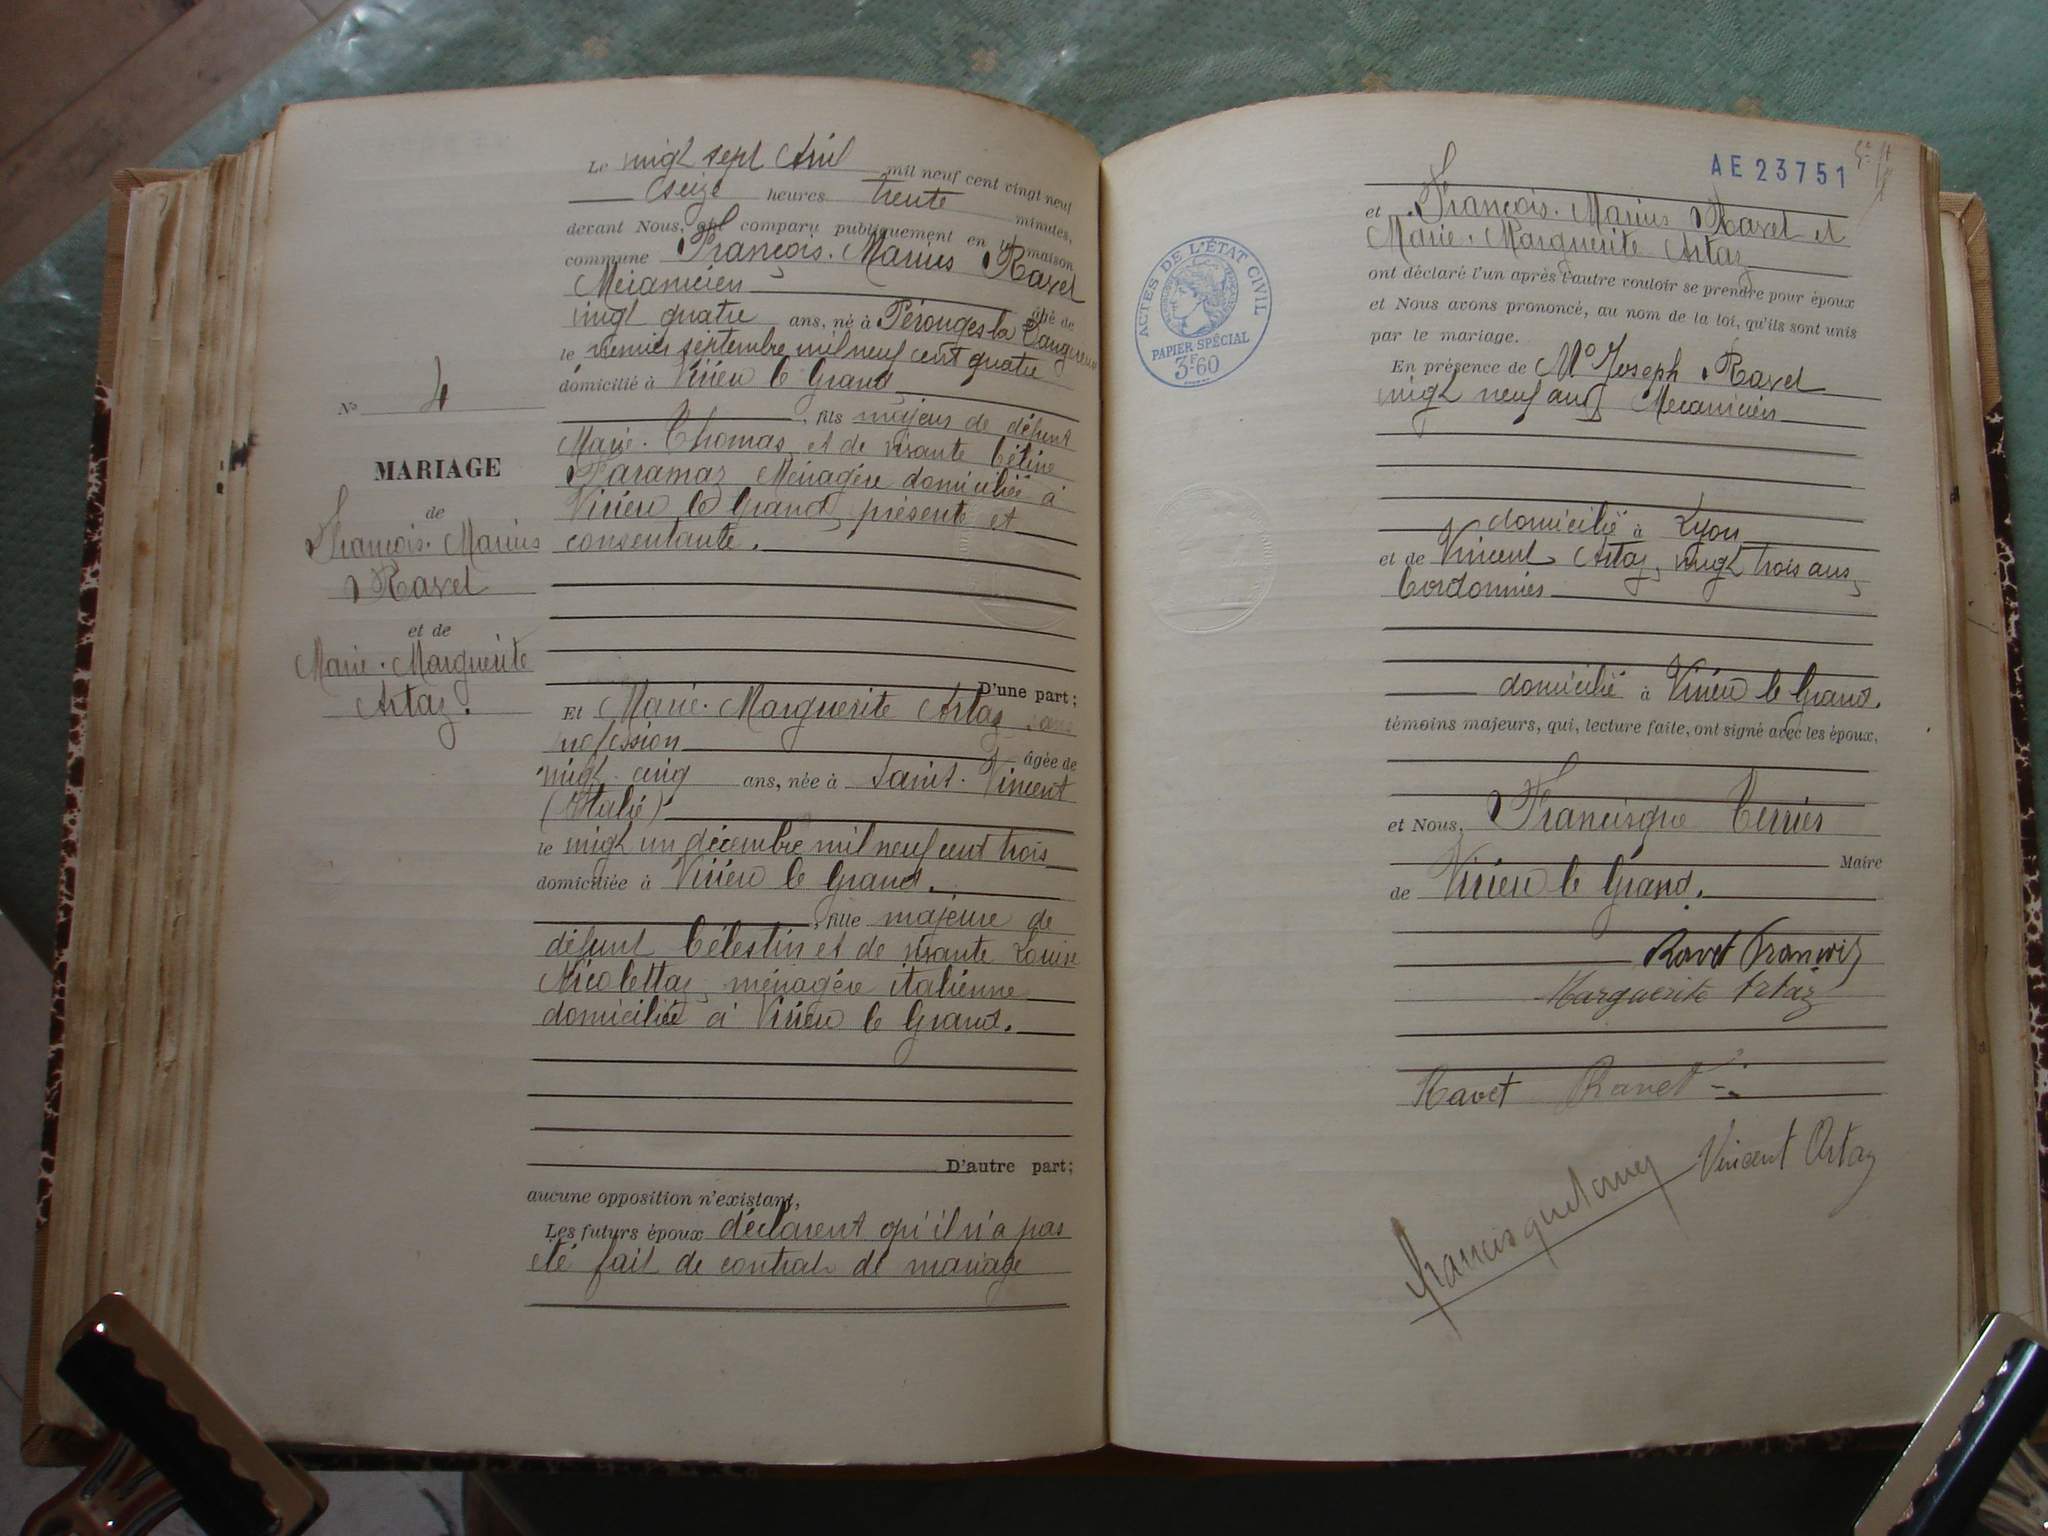 Le vingt sept Avril mil neuf cent vingt neuf
seize heures trente minutes,
devant Nous, ont comparu publiquement en la maison
commune François. Marius Ravet
Mécanicien âgé de
vingt quatre ans, né à Pérouges la
le premier septembre mil neuf cent quatre
domicilié à Virieu le Grand
, fils majeur de défunt
Marie. Thomas et de vivante Céline
Faramaz Ménagère domiciliée à
Virieu le Grand, présente et
consentante.
D'une part;
Et Marie. Marguerite Artaz, sans
profession âgée de
vingt-cinq ans, née à Saint. Vincent
(Italie)
le vingt un décembre mil neuf cent trois
domiciliée à Virieu le Grand.
, fille majeure de
défunt Célestin et de vivante Louise
Nicolettaz, ménagère italienne
domiciliée à Virieu le Grand.
D'autre part;
aucune opposition n'existant,
Les futurs époux déclarent qu'il n'a pas
été fait de contrat de mariage
No 4
MARIAGE
de
François. Marius
Ravet
et de
Marie. Marguerite
Artaz.
AE 23751
ACTES DE L'ÉTAT CIVIL
PAPIER SPÉCIAL
3F60
et François. Marius Ravet et
Marie. Marguerite Artaz
ont déclaré l'un après l'autre vouloir se prendre pour époux
et Nous avons prononcé, au nom de la loi, qu'ils sont unis
par le mariage.
En présence de Joseph Ravet
vingt neuf ans, Mécanicien
domicilié à Lyon
et de Vincent Artaz, vingt trois ans,
Cordonnier
domicilié à Virieu le Grand.
témoins majeurs, qui, lecture faite, ont signé avec les époux,
et Nous, Francisque Terrier
Maire
de Virieu le Grand.
Ravet François
Marguerite Artaz
Ravet Ravet
Vincent Artaz